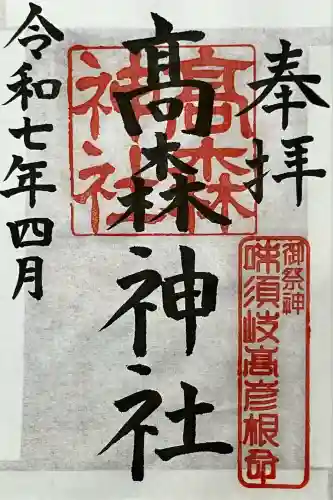 奉拝
御祭神
味須岐高彦根命
髙森神社
高森
神社
令和七年四月